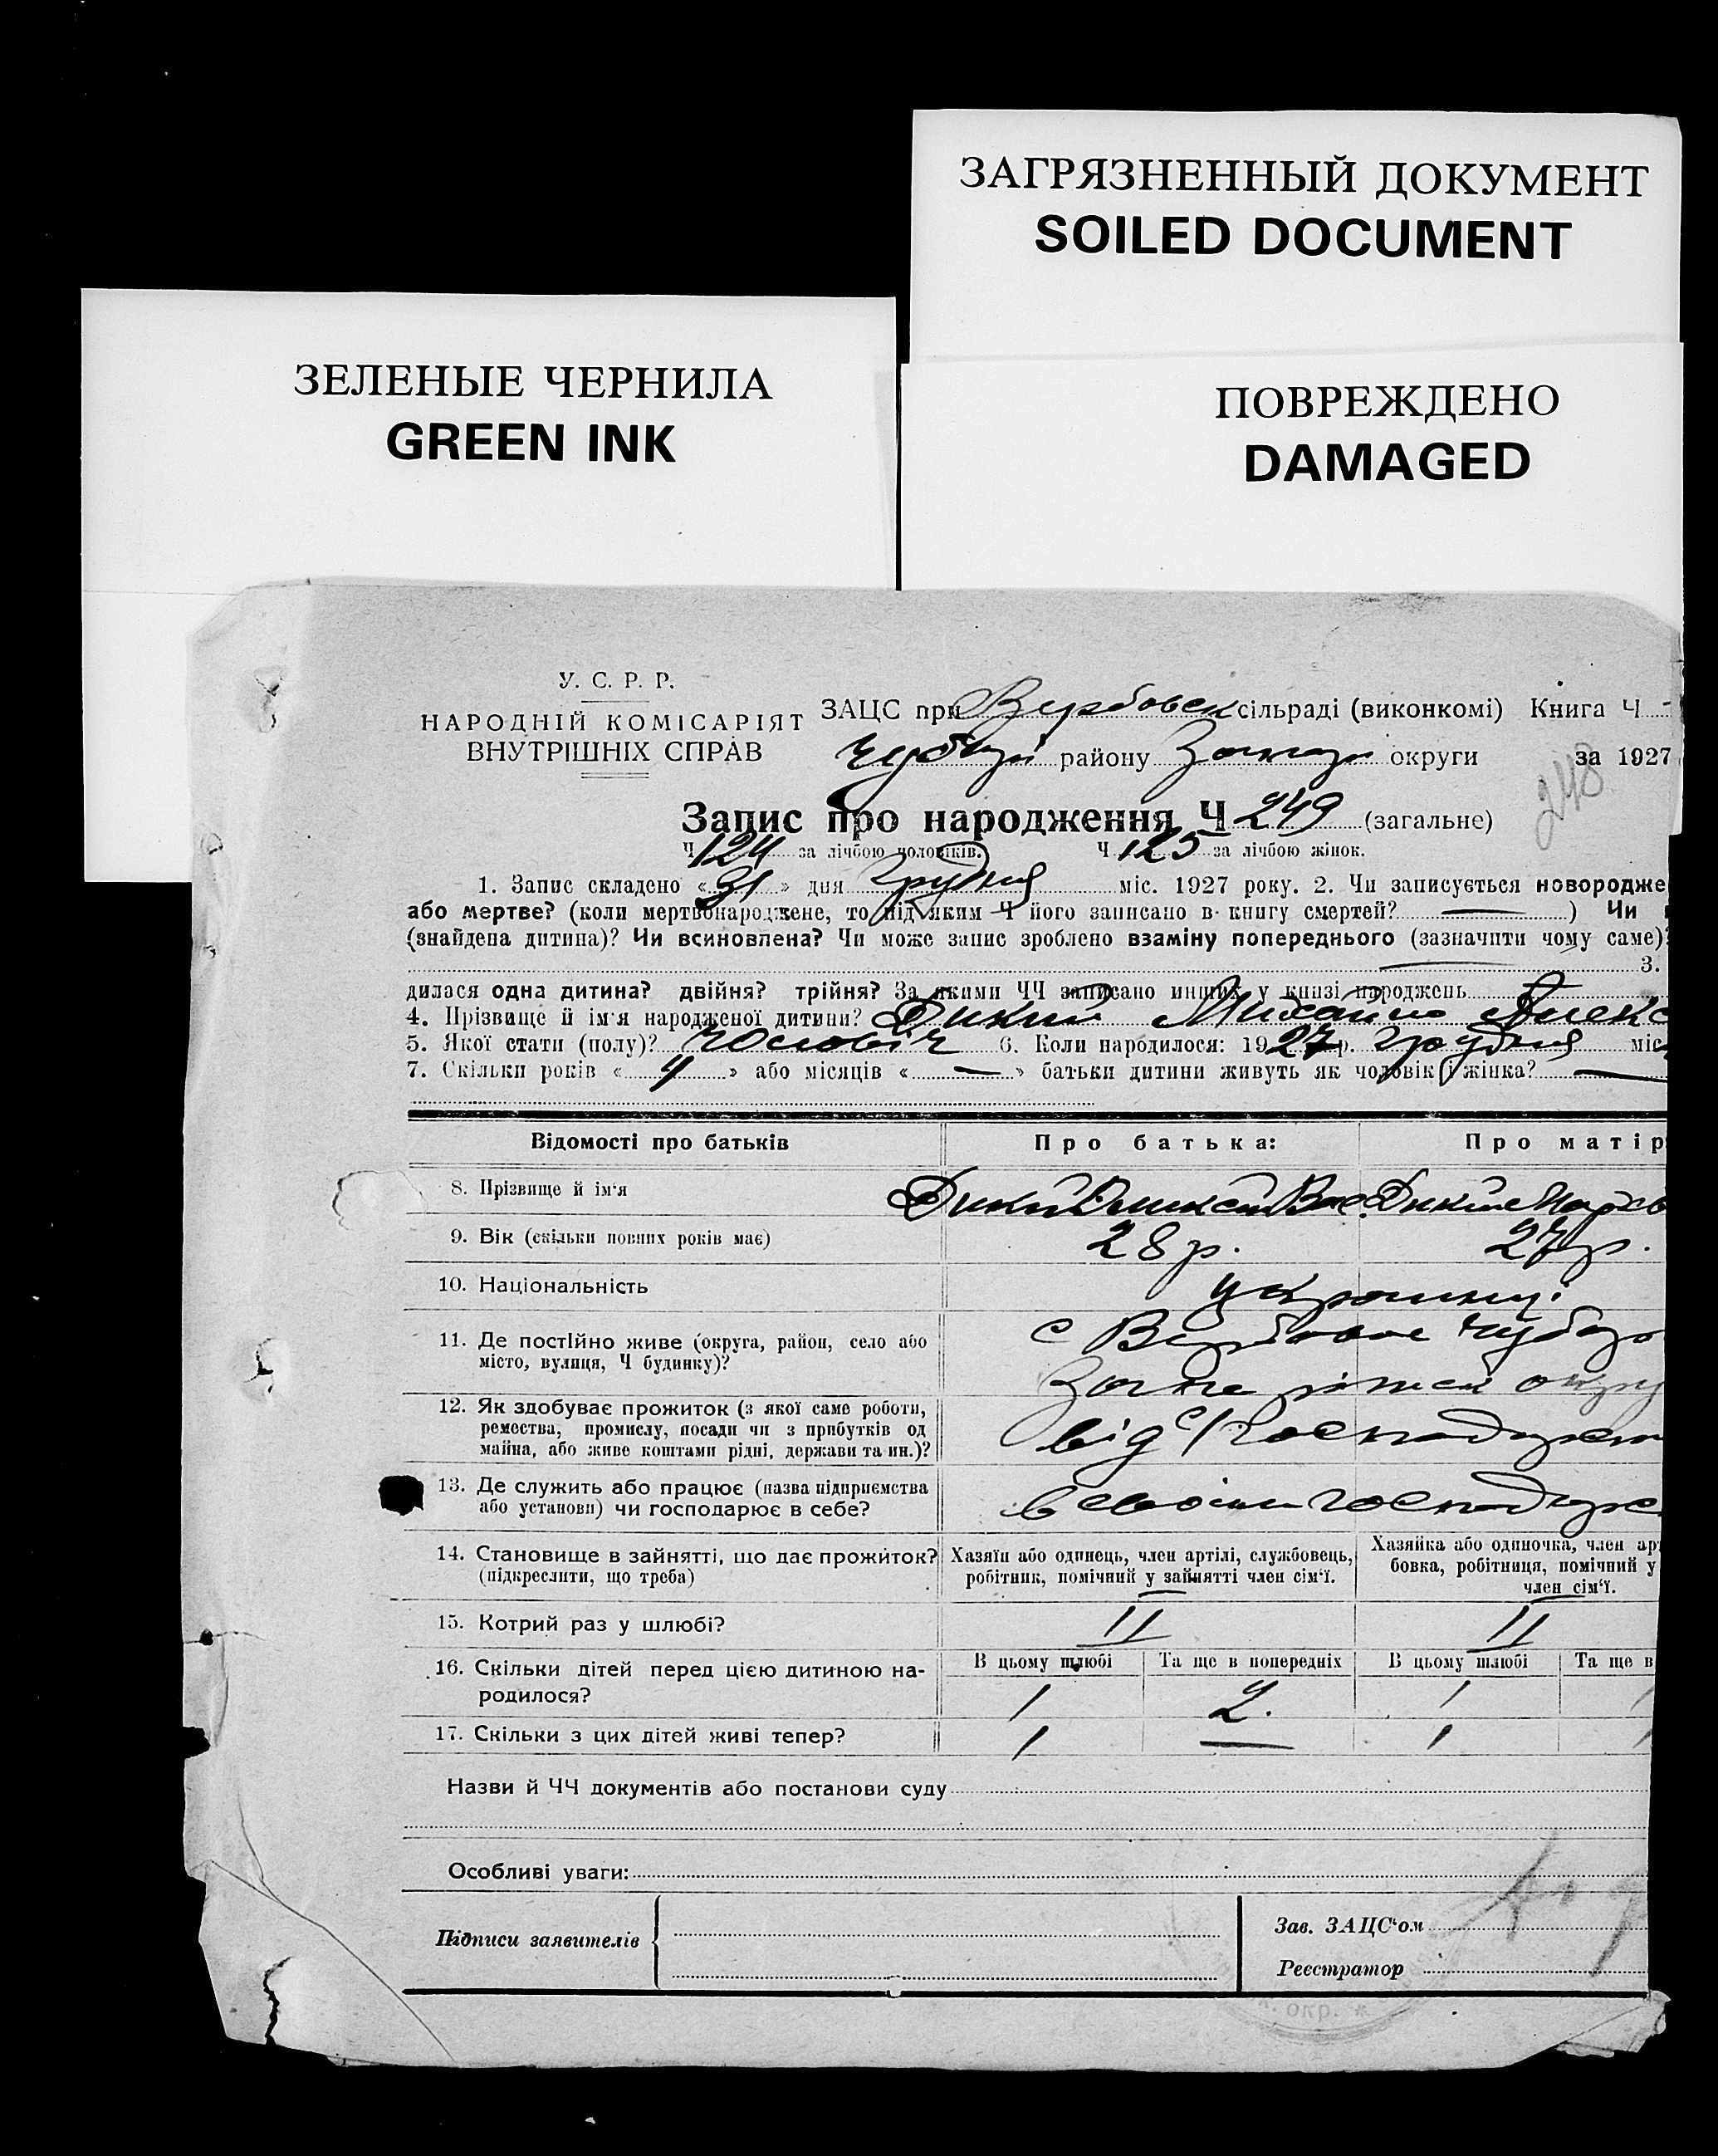 ЗАГРЯЗНЕННЫЙ ДОКУМЕНТ
SOILED DOCUMENT
ЗЕЛЕНЫЕ ЧЕРНИЛА
GREEN INK
ПОВРЕЖДЕНО
DAMAGED
У. С. Р. Р.
НАРОДНІЙ КОМІСАРІЯТ
ВНУТРІШНІХ СПРАВ
ЗАЦС при Вербовск сільраді (виконкомі) Книга Ч
району округи за 1927
248
Запис про народження Ч 249 (загальне)
Ч 124 за лічбою чоловіків. Ч 125 за лічбою жінок.
1. Запис складено «31» дня Грудня міс. 1927 року. 2. Чи записується новородже
або мертве? (коли мертвонароджене, то під яким Ч його записано в книгу смертей? —) Чи
(знайдена дитина)? Чи всиновлена? Чи може запис зроблено взаміну попереднього (зазначити чому саме)?
— 3.
дилася одна дитина? двійня? трійня? За якими ЧЧ записано инших у книзі народжень
4. Прізвище й ім'я народженої дитини? Дикий Михайло Алекс
5. Якої стати (полу)? Чоловіч 6. Коли народилося: 1927 р. Грудня міс
7. Скільки років «4» або місяців «—» батьки дитини живуть як чоловік і жінка? —
Відомості про батьків Про батька: Про матір
8. Прізвище й ім'я Дикий Вас. Дикая Марія
9. Вік (скільки повних років має) 28 р. 27 р.
10. Національність українці
11. Де постійно живе (округа, район, село або
місто, вулиця, Ч будинку)?
с Вербовое
12. Як здобуває прожиток (з якої саме роботи,
ремества, промислу, посади чи з прибутків од
майна, або живе коштами рідні, держави та ин.)?
від с/господарст
13. Де служить або працює (назва підприємства
або установи) чи господарює в себе?
в своім господарс
14. Становище в зайнятті, що дає прожиток?
(підкреслити, що треба)
Хазяїн або одинець, член артілі, службовець,
робітник, помічний у зайнятті член сім'ї.
Хазяйка або одиночка, член ар
бовка, робітниця, помічний у
член сім'ї.
15. Котрий раз у шлюбі? II II
16. Скільки дітей перед цією дитиною на-
родилося?
В цьому шлюбі Та ще в попередніх В цьому шлюбі Та ще в
1 2. 1
17. Скільки з цих дітей живі тепер? 1 — 1
Назви й ЧЧ документів або постанови суду
Особливі уваги:
Підписи заявителів
Зав. ЗАЦС'ом
Реєстратор
окр.